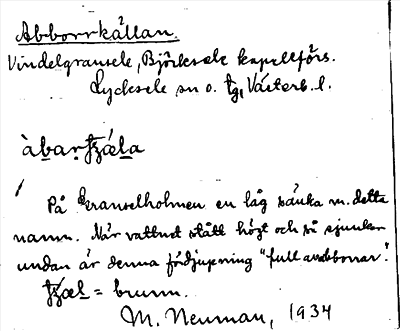 Abborrkällan.
Vindelgransele, Björksele kapellförs.
Lycksele sn o. tg, Västerb. l.
àbarţzǽla
På Granselholmen en låg sänka m. detta
namn. När vattnet stått högt och så sjunker
undan är denna fördjupning "full av abborrar".
= brunn.
M. Neuman, 1934